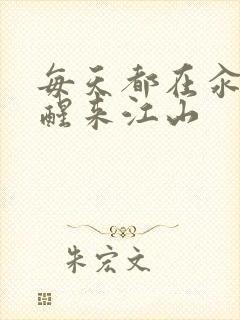 每天都在
醒来江山
朱宏文